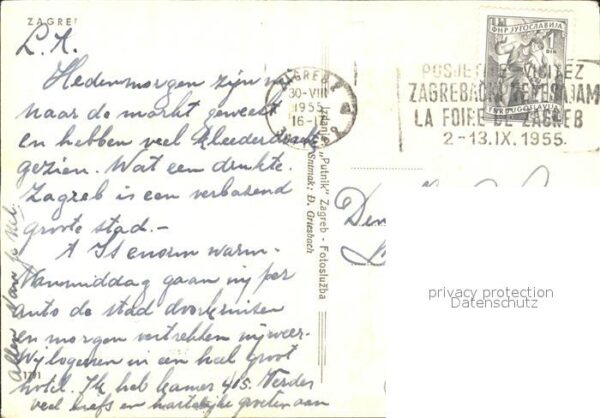 ZAGREB
L. A.
Hedenmorgen zijn wij
naar de markt geweest
en hebben veel kleederdracht
gezien. Wat een drukte.
Zagreb is een verbazend
groote stad.-
Is enorm warm.
Vanmiddag gaan wij per
auto de stad doorkruisen
en morgen vertrekken wij weer.
Wij logeeren in een heel groot
hotel. Ik heb kamer 415. Verder
veel liefs en hartelijke groeten aan
Allen
1791
"Putnik" Zagreb - Fotoslužba
Snimak: Đ. Griesbach
ZAGREB 2
30-VIII
1955
16-17
ФНР ЈУГОСЛАВИЈА
1
DIN
FNR JUGOSLAVIJA
POSJETITE VISITEZ
ZAGREBAČKI VELESAJAM
LA FOIRE DE ZAGREB
2-13.IX.1955.
Den
privacy protection
Datenschutz